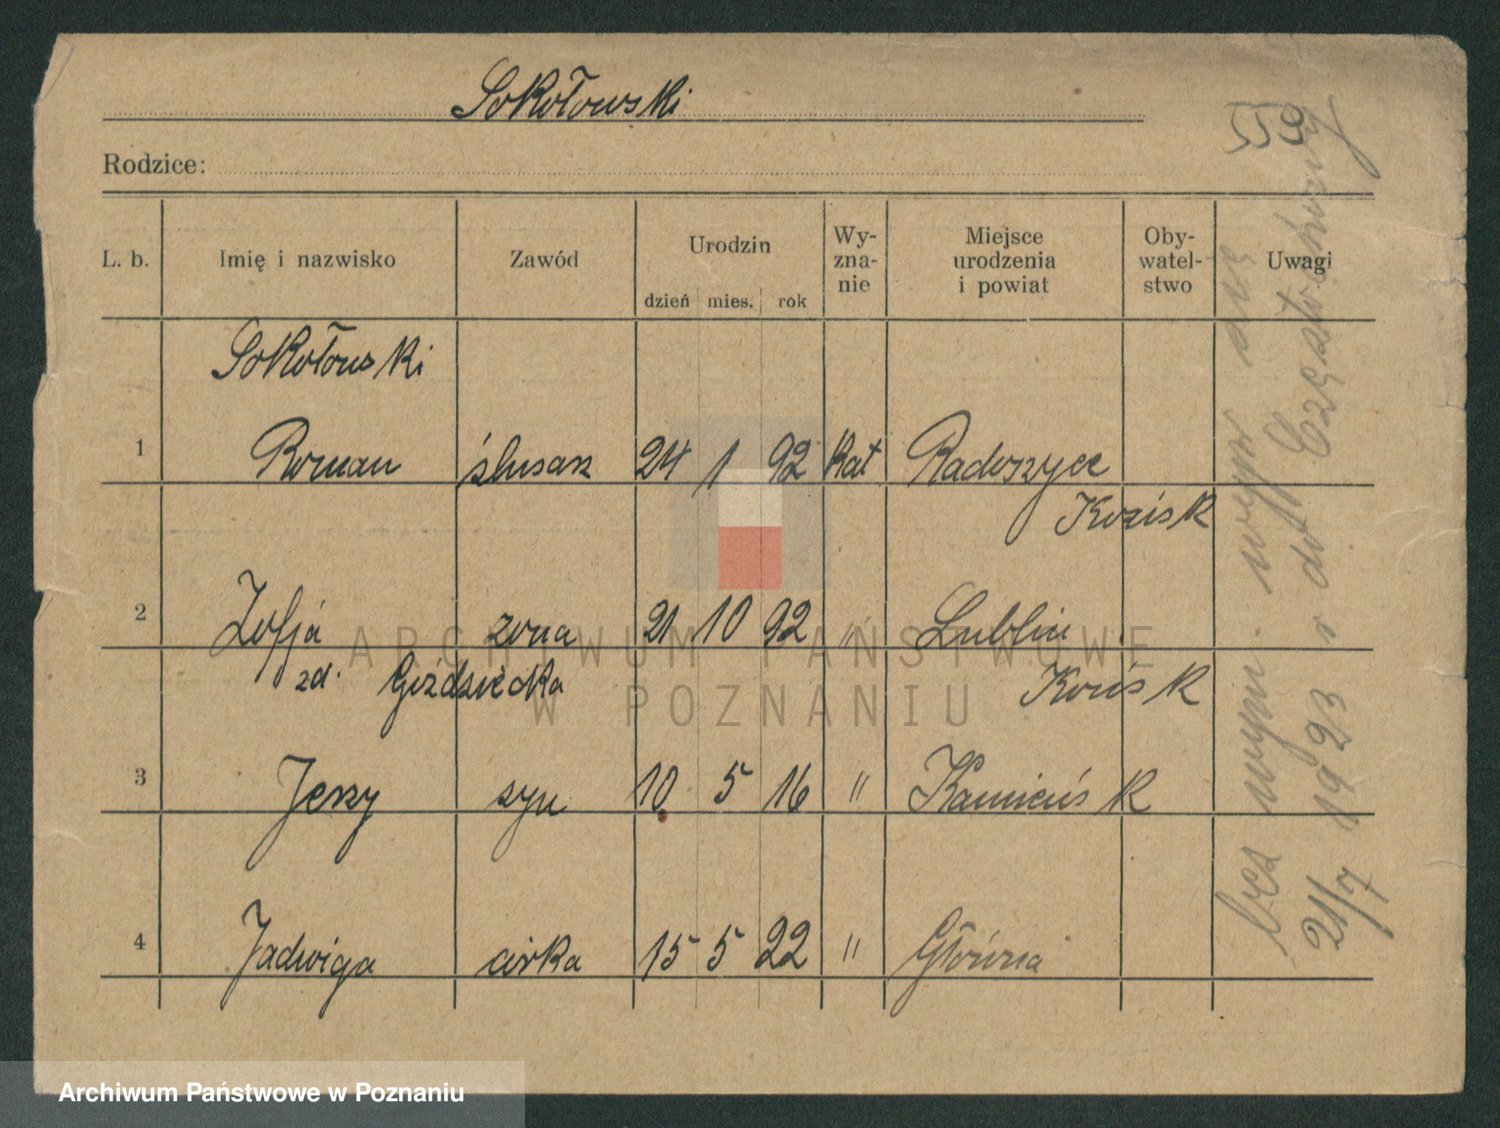 Sokołowski
559
Rodzice:
L. b. Imię i nazwisko Zawód Urodzin dzień mies. rok Wy-zna-nie Miejsce urodzenia i powiat Oby-watel-stwo Uwagi
Sokołowski
1 Roman ślusarz 24 1 92 Kat Radoszyce
Kozisk
2 Zofja żona 21 10 92 " Lublin
zd. Końsk
3 Jerzy syn 10 5 16 " Kamieńsk
4 Jadwiga córka 15 5 22 " Główna
bez wym. wypr się
21/7 1923 r do Częstochowy
ARCHIWUM PAŃSTWOWE
W POZNANIU
Archiwum Państwowe w Poznaniu